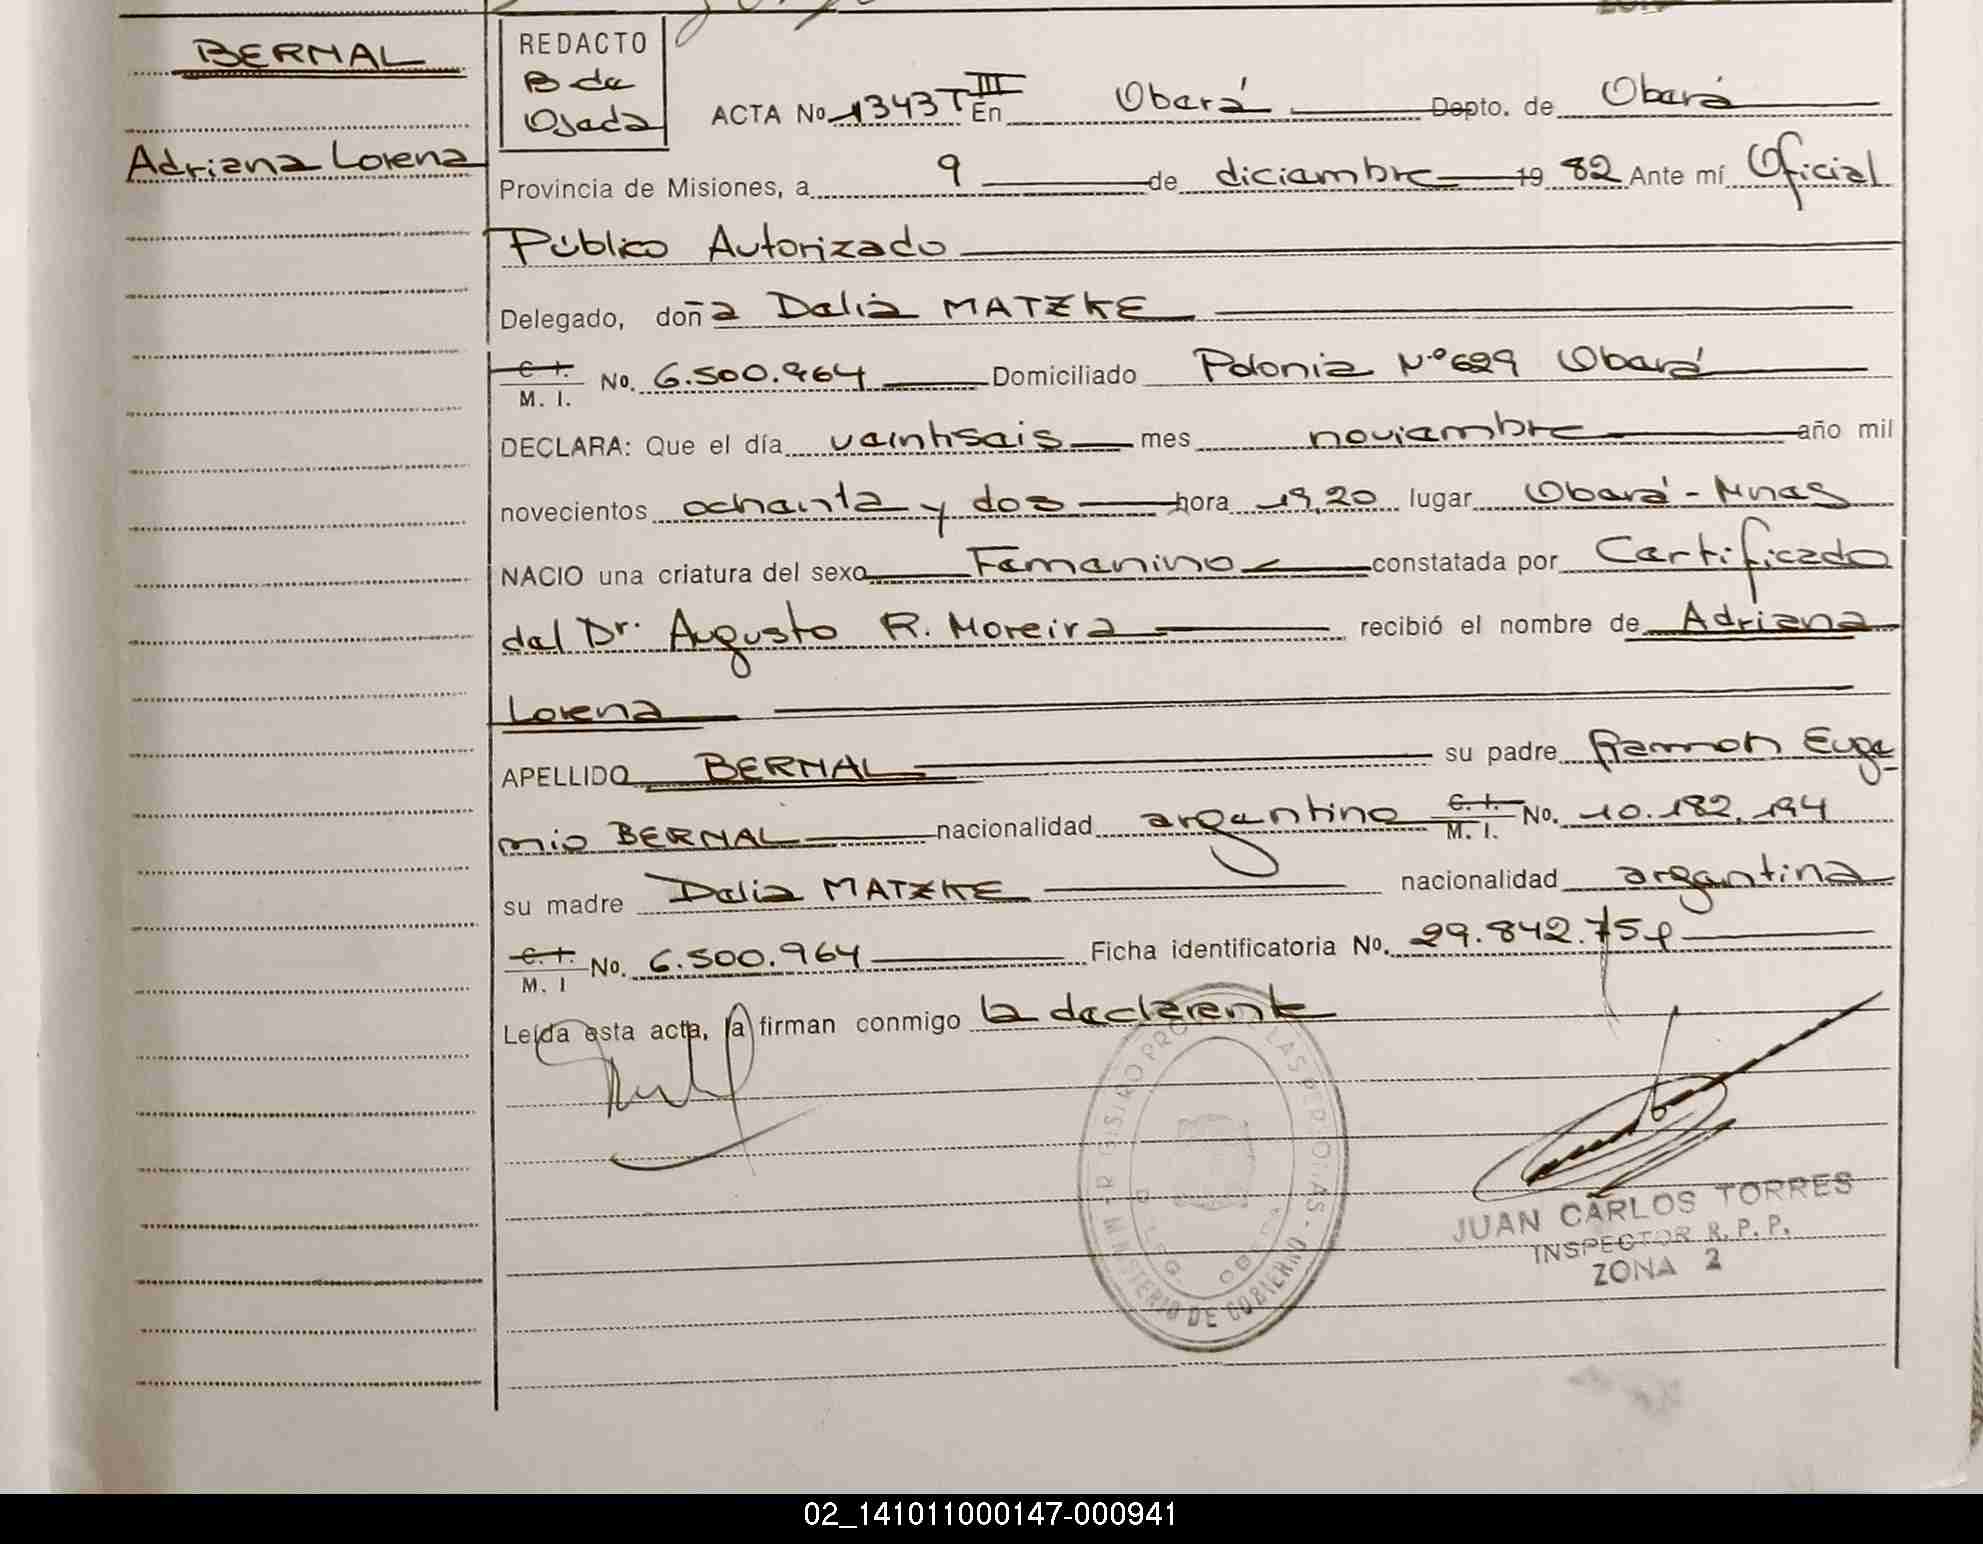 BERNAL
Adriana Lorena
REDACTO
B de
Ojeda
ACTA No 1343 T III En Oberá Depto. de Oberá
Provincia de Misiones, a 9 de diciembre 19 82 Ante mí Oficial
Público Autorizado
Delegado, doña Delia MATZKE
C. I. / M. I. No. 6.500.964 Domiciliado Polonia Nº 629 Oberá
DECLARA: Que el día veintiseis mes noviembre año mil
novecientos ochenta y dos hora 19,20 lugar Oberá - Mnes
NACIO una criatura del sexo Femenino constatada por Certificado
del Dr. Augusto R. Moreira recibió el nombre de Adriana
Lorena
APELLIDO BERNAL su padre Ramon Euge
nio BERNAL nacionalidad argentino C. I. / M. I. No. 10.182.194
su madre Delia MATZKE nacionalidad argentina
C. I. / M. I No. 6.500.964 Ficha identificatoria No. 29.842.75
Leída esta acta, la firman conmigo la declarente
REGISTRO PRO LAS PERSONAS - MINISTERIO DE GOBIERNO
DELEG. OBERA
JUAN CARLOS TORRES
INSPECTOR R. P. P.
ZONA 2
02_141011000147-000941